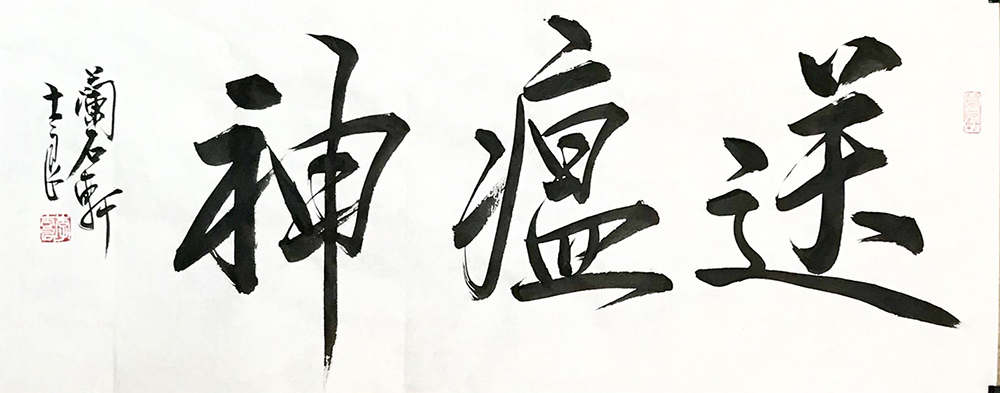 送瘟神
蘭石軒
士良